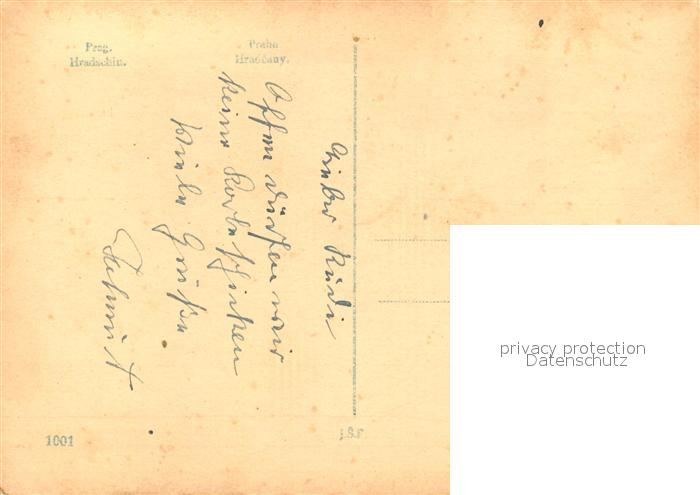 Prag.
Hradschin.
Praha
Hradčany.
Lieber Rudi
Offen dürfen wir
keine Karte schicken
Viele Grüße
1001
privacy protection
Datenschutz